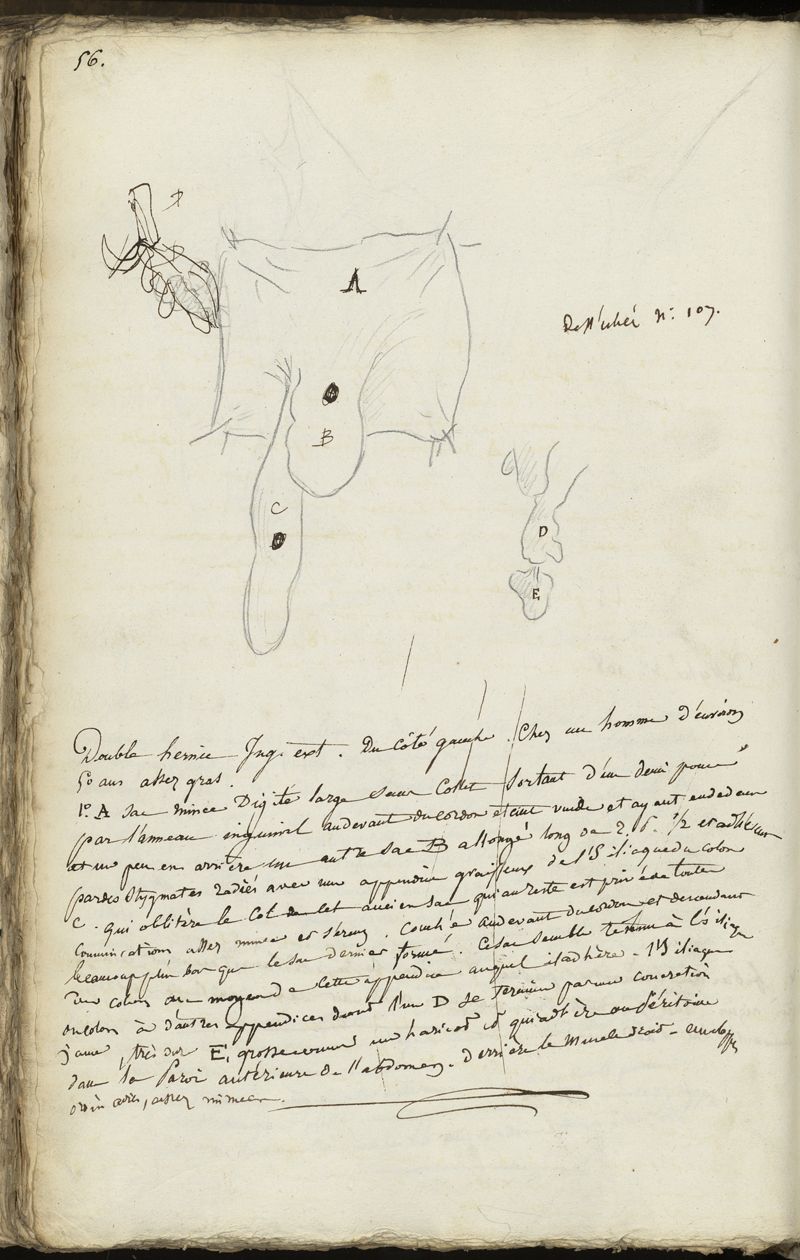 56.
A
Desséché n.º 107.
B
C
D
E
Double hernie Ing. ext. Du Côté gauche. Chez un homme d'environ
50 ans assez gras.
1.º A Sac mince Digité large sans Collet Sortant d'un demi pouce
par l'anneau inguinal audevant du cordon étant vuide et ayant en dedans
et un peu en arrière un autre sac B allongé long de 2. p. 1/2 et adhérent
par des Stygmates radiés avec une appendice graisseux de l'S iliaque du colon
C. qui oblitère le Col de cet ancien sac qui au reste est privé de toute
Communication assez mince et séreux. Couché audevant du cordon et descendant
beaucoup plus bas que le sac dernier formé. Ce sac semble tenir à l'S iliaque
du colon au moyen de cette appendice auquel il adhère - l'S iliaque
du colon a d'autres appendices dont l'un D se termine par une concrétion
jaune, très dur E, grosse comme un haricot et qui adhère au Péritoine
dans la Paroi antérieure de l'abdomen. derrière le Muscle droit -
assez mince.